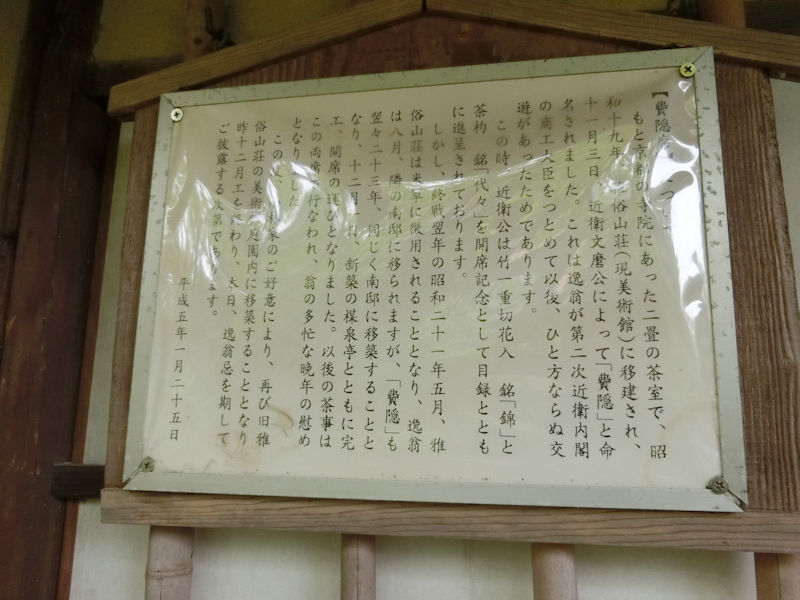 【費隠席
もと京都の寺院にあった二畳の茶室で、昭
和十九年、雅俗山荘(現美術館)に移建され、
十一月三日、近衛文麿公によって「費隠」と命
名されました。これは逸翁が第二次近衛内閣
の商工大臣をつとめて以後、ひと方ならぬ交
遊があったためであります。
この時、近衛公は竹一重切花入 銘「錦」と
茶杓 銘「代々」を開席記念として目録ととも
に進呈されております。
しかし、終戦翌年の昭和二十一年五月、雅
俗山荘は米軍に徴用されることとなり、逸翁
は八月、隣の南邸に移られますが、「費隠」も
翌々二十三年、同じく南邸に移築することと
なり、十二月 日、新築の楳泉亭とともに完
工、開席の運びとなりました。以後の茶事は
この両席で行なわれ、翁の多忙な晩年の慰め
となりました
この 家のご好意により、再び旧雅
俗山荘の美術館庭園内に移築することとなり
昨十二月工を終わり、本日、逸翁忌を期して
ご披露する次第であります。
平成五年一月二十五日